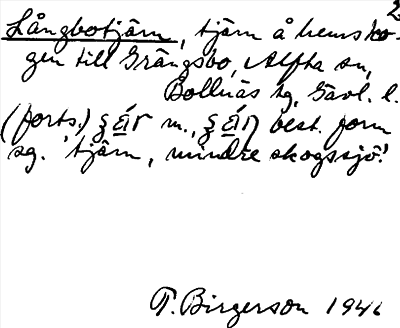 2
Långbotjärn, tjärn å hemsko-
gen till Grängsbo, Alfta sn,
Bollnäs tg, Gävl. l.
(forts.) m., best. form
sg. 'tjärn, mindre skogssjö.'
T. Birgerson 1946